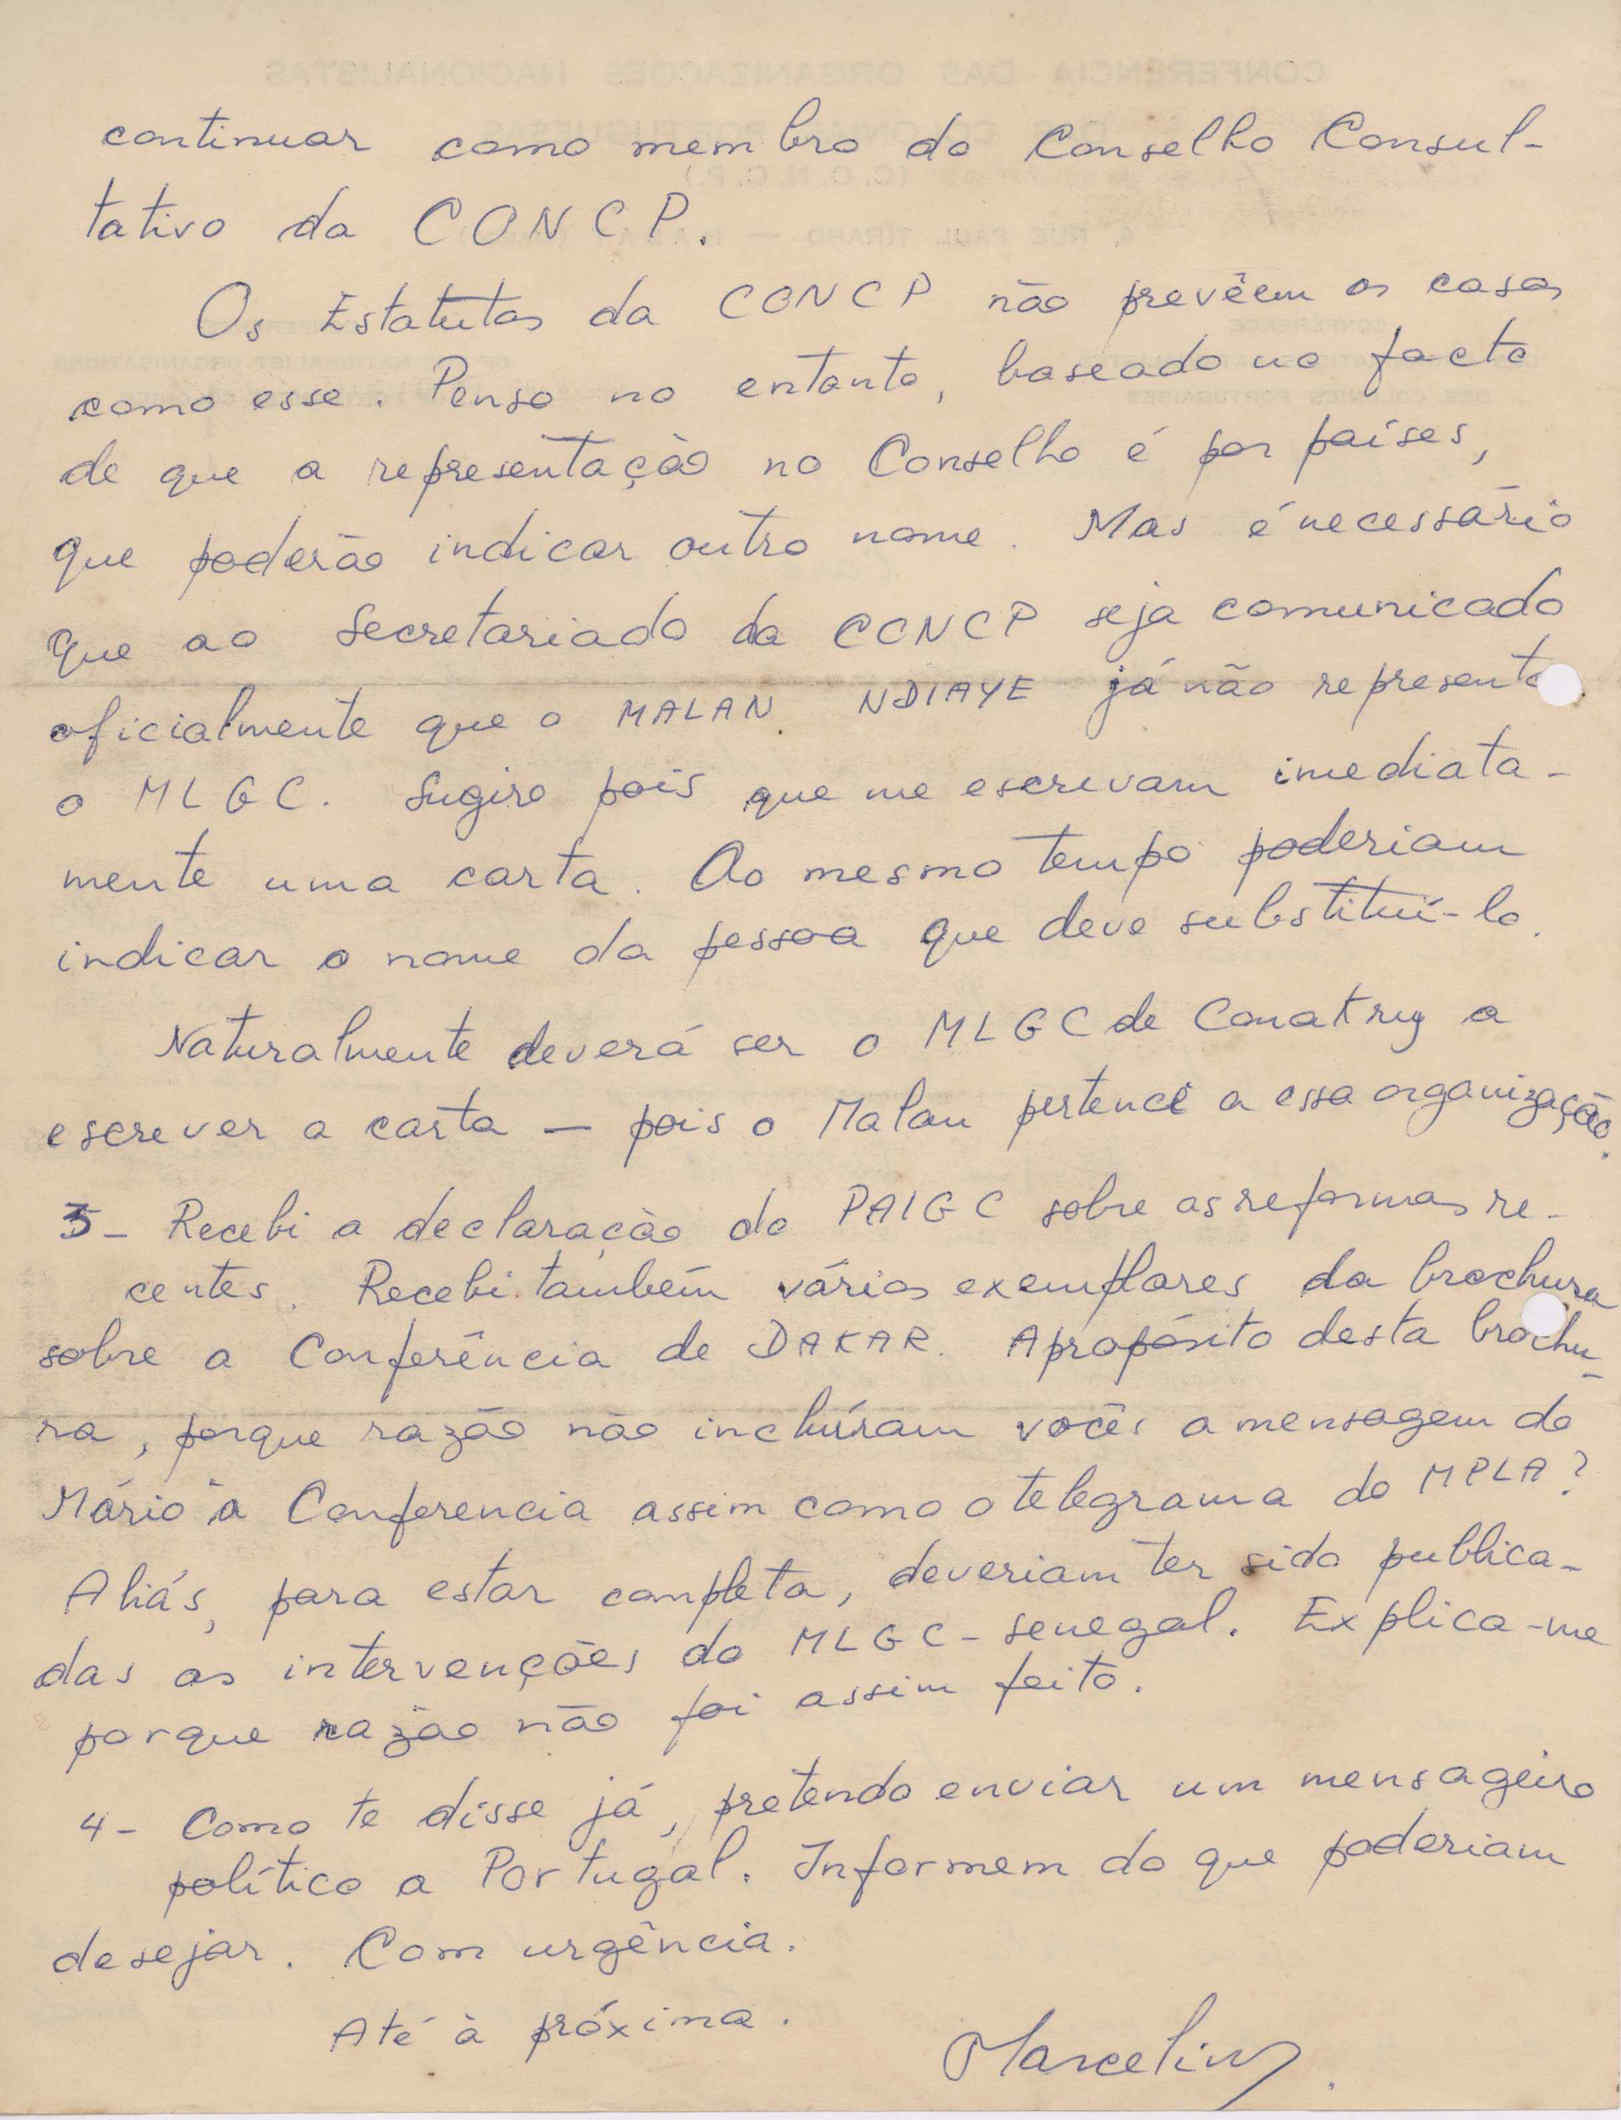 continuar como membro do Conselho Consul-
tativo da CONCP.
Os Estatutos da CONCP não prevêem os casos
como esse. Penso no entanto, baseado no facto
de que a representação no Conselho é por países,
que poderão indicar outro nome. Mas é necessário
que ao Secretariado da CONCP seja comunicado
oficialmente que o MALAN NDIAYE já não representa
o MLGC. Sugiro pois que me escrevam imediata-
mente uma carta. Ao mesmo tempo poderiam
indicar o nome da pessoa que deve substituí-lo.
Naturalmente deverá ser o MLGC de Conakry a
escrever a carta — pois o Malan pertence a essa organização.
3- Recebi a declaração do PAIGC sobre as reformas re-
centes. Recebi também vários exemplares da brochura
sobre a Conferência de DAKAR. Apropósito desta brochu-
ra, porque razão não incluíram vocês a mensagem do
Mário à Conferencia assim como o telegrama do MPLA?
Aliás, para estar completa, deveriam ter sido publica-
das as intervenções do MLGC-Senegal. Explica-me
porque razão não foi assim feito.
4- Como te disse já, pretendo enviar um mensageiro
político a Portugal. Informem do que poderiam
desejar. Com urgência.
Até à próxima.
Marcelino